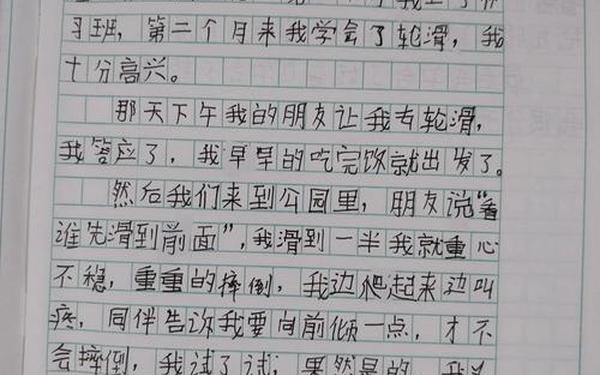 习班，第二个月来我学会了轮滑，我
十分高兴。
那天下午我的朋友让我专轮滑，
我答应了，我早早的吃完饭就出发了。
然后我们来到公园里，朋友说“看
谁先滑到前面”，我滑到一半我就重心
不稳，重重的摔倒，我边爬起来边叫
疼，同伴告诉我要向前倾一点，才不
会摔倒，我试了试，果然是的，我